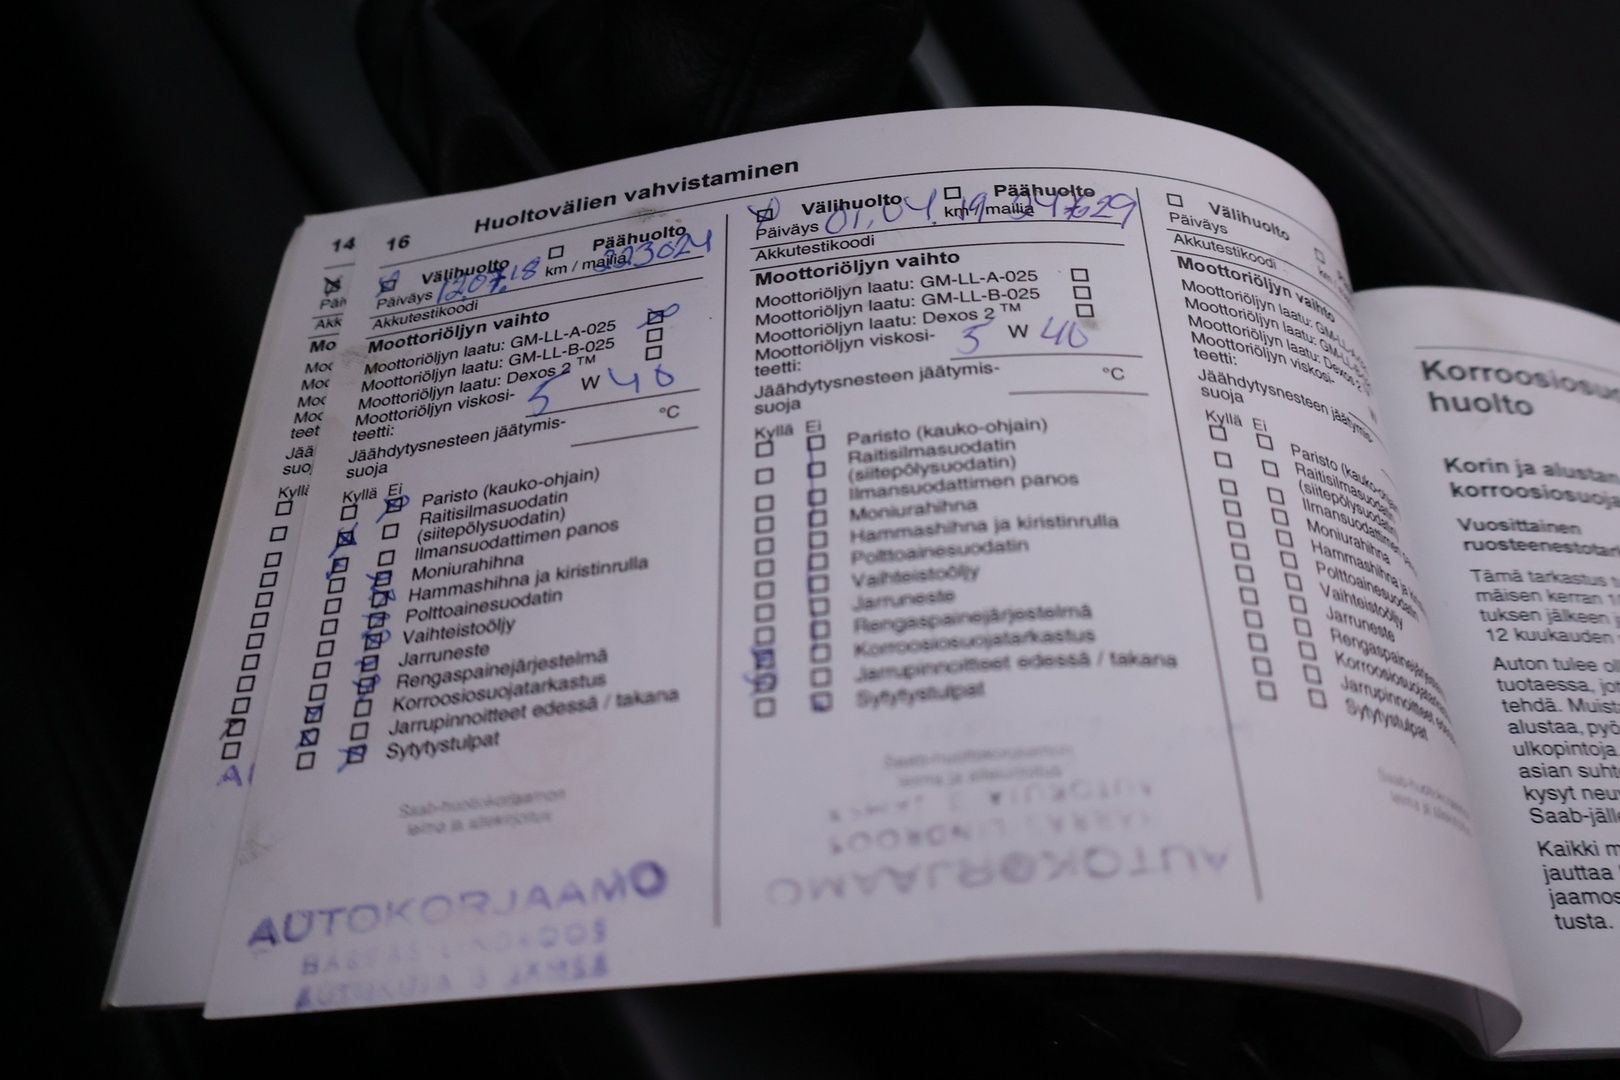 14
Pä
Akk
Mo
Moo
Moo
Moo
Moo
teet
Jää
suo
Kyll
16
Huoltovälien vahvistaminen
Välihuolto Päähuolto
Päiväys 12.07.18 km / mailia 223024
Akkutestikoodi
Moottoriöljyn vaihto
Moottoriöljyn laatu: GM-LL-A-025
Moottoriöljyn laatu: GM-LL-B-025
Moottoriöljyn laatu: Dexos 2 ™
Moottoriöljyn viskosi-
teetti: 5 W 40
Jäähdytysnesteen jäätymis-
suoja °C
Kyllä Ei
Paristo (kauko-ohjain)
Raitisilmasuodatin
(siitepölysuodatin)
Ilmansuodattimen panos
Moniurahihna
Hammashihna ja kiristinrulla
Polttoainesuodatin
Vaihteistoöljy
Jarruneste
Rengaspainejärjestelmä
Korroosiosuojatarkastus
Jarrupinnoitteet edessä / takana
Sytytystulpat
Saab-huoltokorjaamon
leima ja allekirjoitus
AUTOKORJAAMO
Välihuolto Päähuolto
Päiväys 01.04.19 km / mailia 247629
Akkutestikoodi
Moottoriöljyn vaihto
Moottoriöljyn laatu: GM-LL-A-025
Moottoriöljyn laatu: GM-LL-B-025
Moottoriöljyn laatu: Dexos 2 ™
Moottoriöljyn viskosi-
teetti: 5 W 40
Jäähdytysnesteen jäätymis-
suoja °C
Kyllä Ei
Paristo (kauko-ohjain)
Raitisilmasuodatin
(siitepölysuodatin)
Ilmansuodattimen panos
Moniurahihna
Hammashihna ja kiristinrulla
Polttoainesuodatin
Vaihteistoöljy
Jarruneste
Rengaspainejärjestelmä
Korroosiosuojatarkastus
Jarrupinnoitteet edessä / takana
Sytytystulpat
Saab-huoltokorjaamon
leima ja allekirjoitus
AUTOKORJAAMO
Välihuolto
Päiväys
Akkutestikoodi
Moottoriöljyn vaihto
Moottoriöljyn laatu: GM-LL-A
Moottoriöljyn laatu: GM-LL
Moottoriöljyn laatu: Dexos 2
Moottoriöljyn viskosi-
teetti:
Jäähdytysnesteen jäätymis-
suoja
Kyllä Ei
Paristo (kauko-ohjain
Raitisilmasuodatin
(siitepölysuodatin)
Ilmansuodattimen
Moniurahihna
Hammashihna ja
Polttoainesuodatin
Vaihteistoöljy
Jarruneste
Rengaspainejärjestel
Korroosiosuojat
Jarrupinnoitteet
Sytytystulpat
Korroosiosuo
huolto
Korin ja alustan
korroosiosuoja
Vuosittainen
ruosteenestotar
Tämä tarkastus
mäisen kerran
tuksen jälkeen
12 kuukauden
Auton tulee ol
tuotaessa, jot
tehdä. Muist
alustaa, pyö
ulkopintoja
asian suht
kysyt neuv
Saab-jäll
Kaikki m
jauttaa
jaamos
tusta.